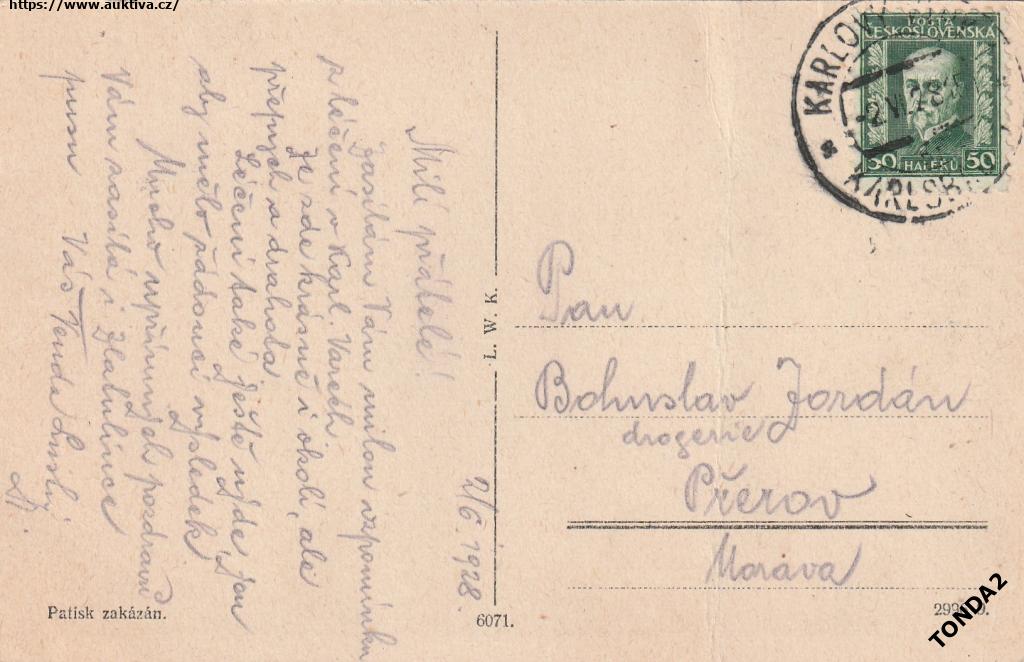 https://www.auktiva.cz/
2/6. 1928.
Milí přátelé!
Zasílám Vám milou vzpomínku
z léčení v Karl. Varech.
Je zde krásně i okolí, ale
přepych a drahota.
Léčení také ještě ujde, jen
aby mělo žádoucí výsledek.
Mnoho upřímných pozdravů
Vám zasílá i Zlatušince
pusu Váš Tonda
Patisk zakázán.
L. W. K.
6071.
POŠTA
ČESKOSLOVENSKÁ
50 HALÉŘŮ 50
KARLOVY
-2.VI.28
KARLSB
Pan
Bohuslav Jordán
drogerie
Přerov
Morava
TONDA2